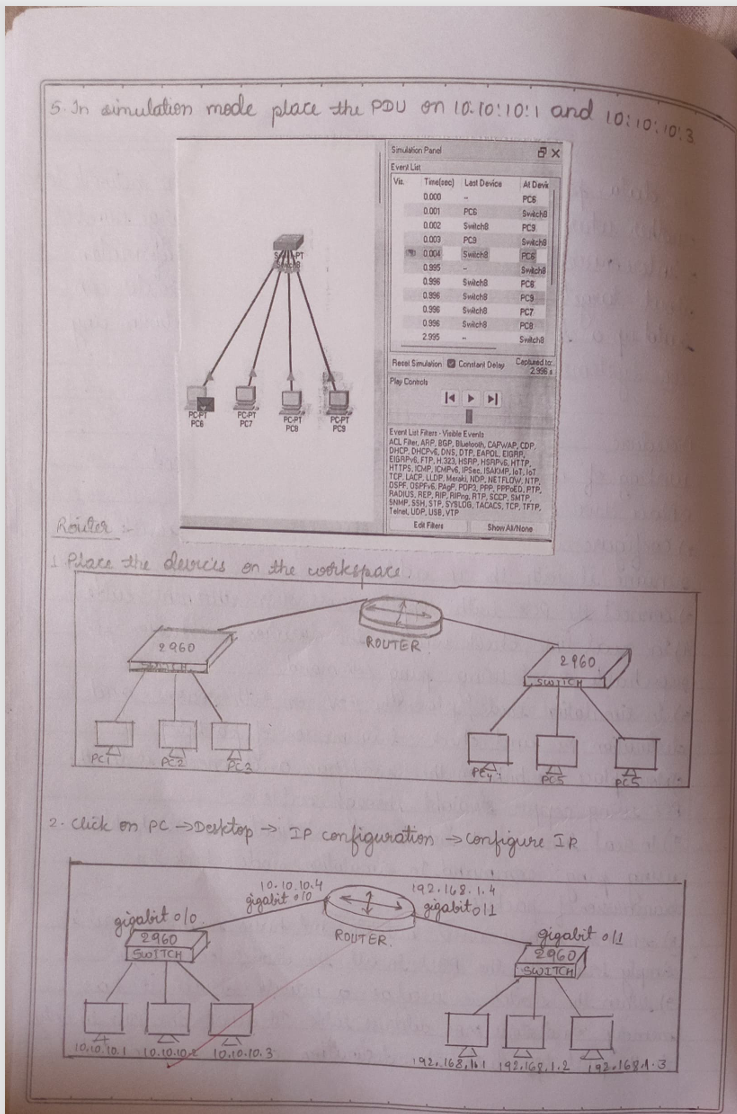 5. In simulation mode place the PDU on 10.10:10:1 and 10:10:10:3
Simulation Panel
Event List
Vis. Time(sec) Last Device At Devis
0.000 -- PC6
0.001 PC6 Switch8
0.002 Switch8 PC9
0.003 PC9 Switch8
0.004 Switch8 PC6
0.995 -- Switch8
0.996 Switch8 PC6
0.996 Switch8 PC9
0.996 Switch8 PC7
0.996 Switch8 PC8
2.995 -- Switch8
Reset Simulation Constant Delay Captured to:
2.996 s
Play Controls
PC-PT
PC6
PC-PT
PC7
PC-PT
PC8
PC-PT
PC9
Event List Filters - Visible Events
ACL Filter, ARP, BGP, Bluetooth, CAPWAP, CDP,
DHCP, DHCPv6, DNS, DTP, EAPOL, EIGRP,
EIGRPv6, FTP, H.323, HSRP, HSRPv6, HTTP,
HTTPS, ICMP, ICMPv6, IPSec, ISAKMP, IoT, IoT
TCP, LACP, LLDP, Meraki, NDP, NETFLOW, NTP,
OSPF, OSPFv6, PAgP, POP3, PPP, PPPoED, PTP,
RADIUS, REP, RIP, RIPng, RTP, SCCP, SMTP,
SNMP, SSH, STP, SYSLOG, TACACS, TCP, TFTP,
Telnet, UDP, USB, VTP
Edit Filters Show All/None
Router :-
1. Place the devices on the workspace.
ROUTER
2960
SWITCH
2960.
SWITCH
PC1 PC2 PC3
PC4 PC5 PC5
2. Click on PC → Desktop → IP configuration → Configure IP
10.10.10.4 192.168.1.4
gigabit 0/0 gigabit 0/1
gigabit 0/0.
ROUTER.
gigabit 0/1
2960
SWITCH
2960
SWITCH
10.10.10.1 10.10.10.2 10.10.10.3
192.168.1.1 192.168.1.2 192.168.1.3